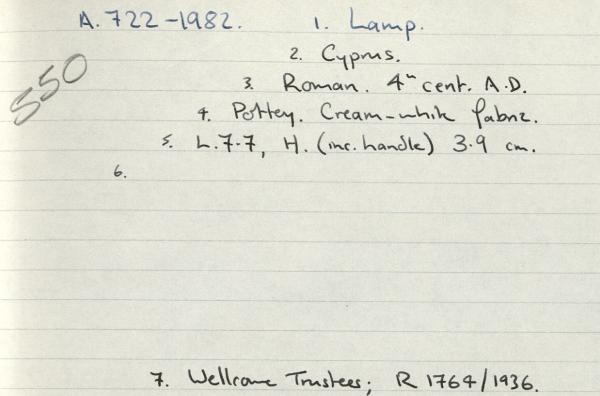 A.722-1982. 1. Lamp.
550
2. Cyprus.
3. Roman. 4th cent. A.D.
4. Pottey. Cream-white fabric.
5. L.7.7, H. (inc. handle) 3.9 cm.
6.
7. Wellcome Trustees; R 1764/1936.